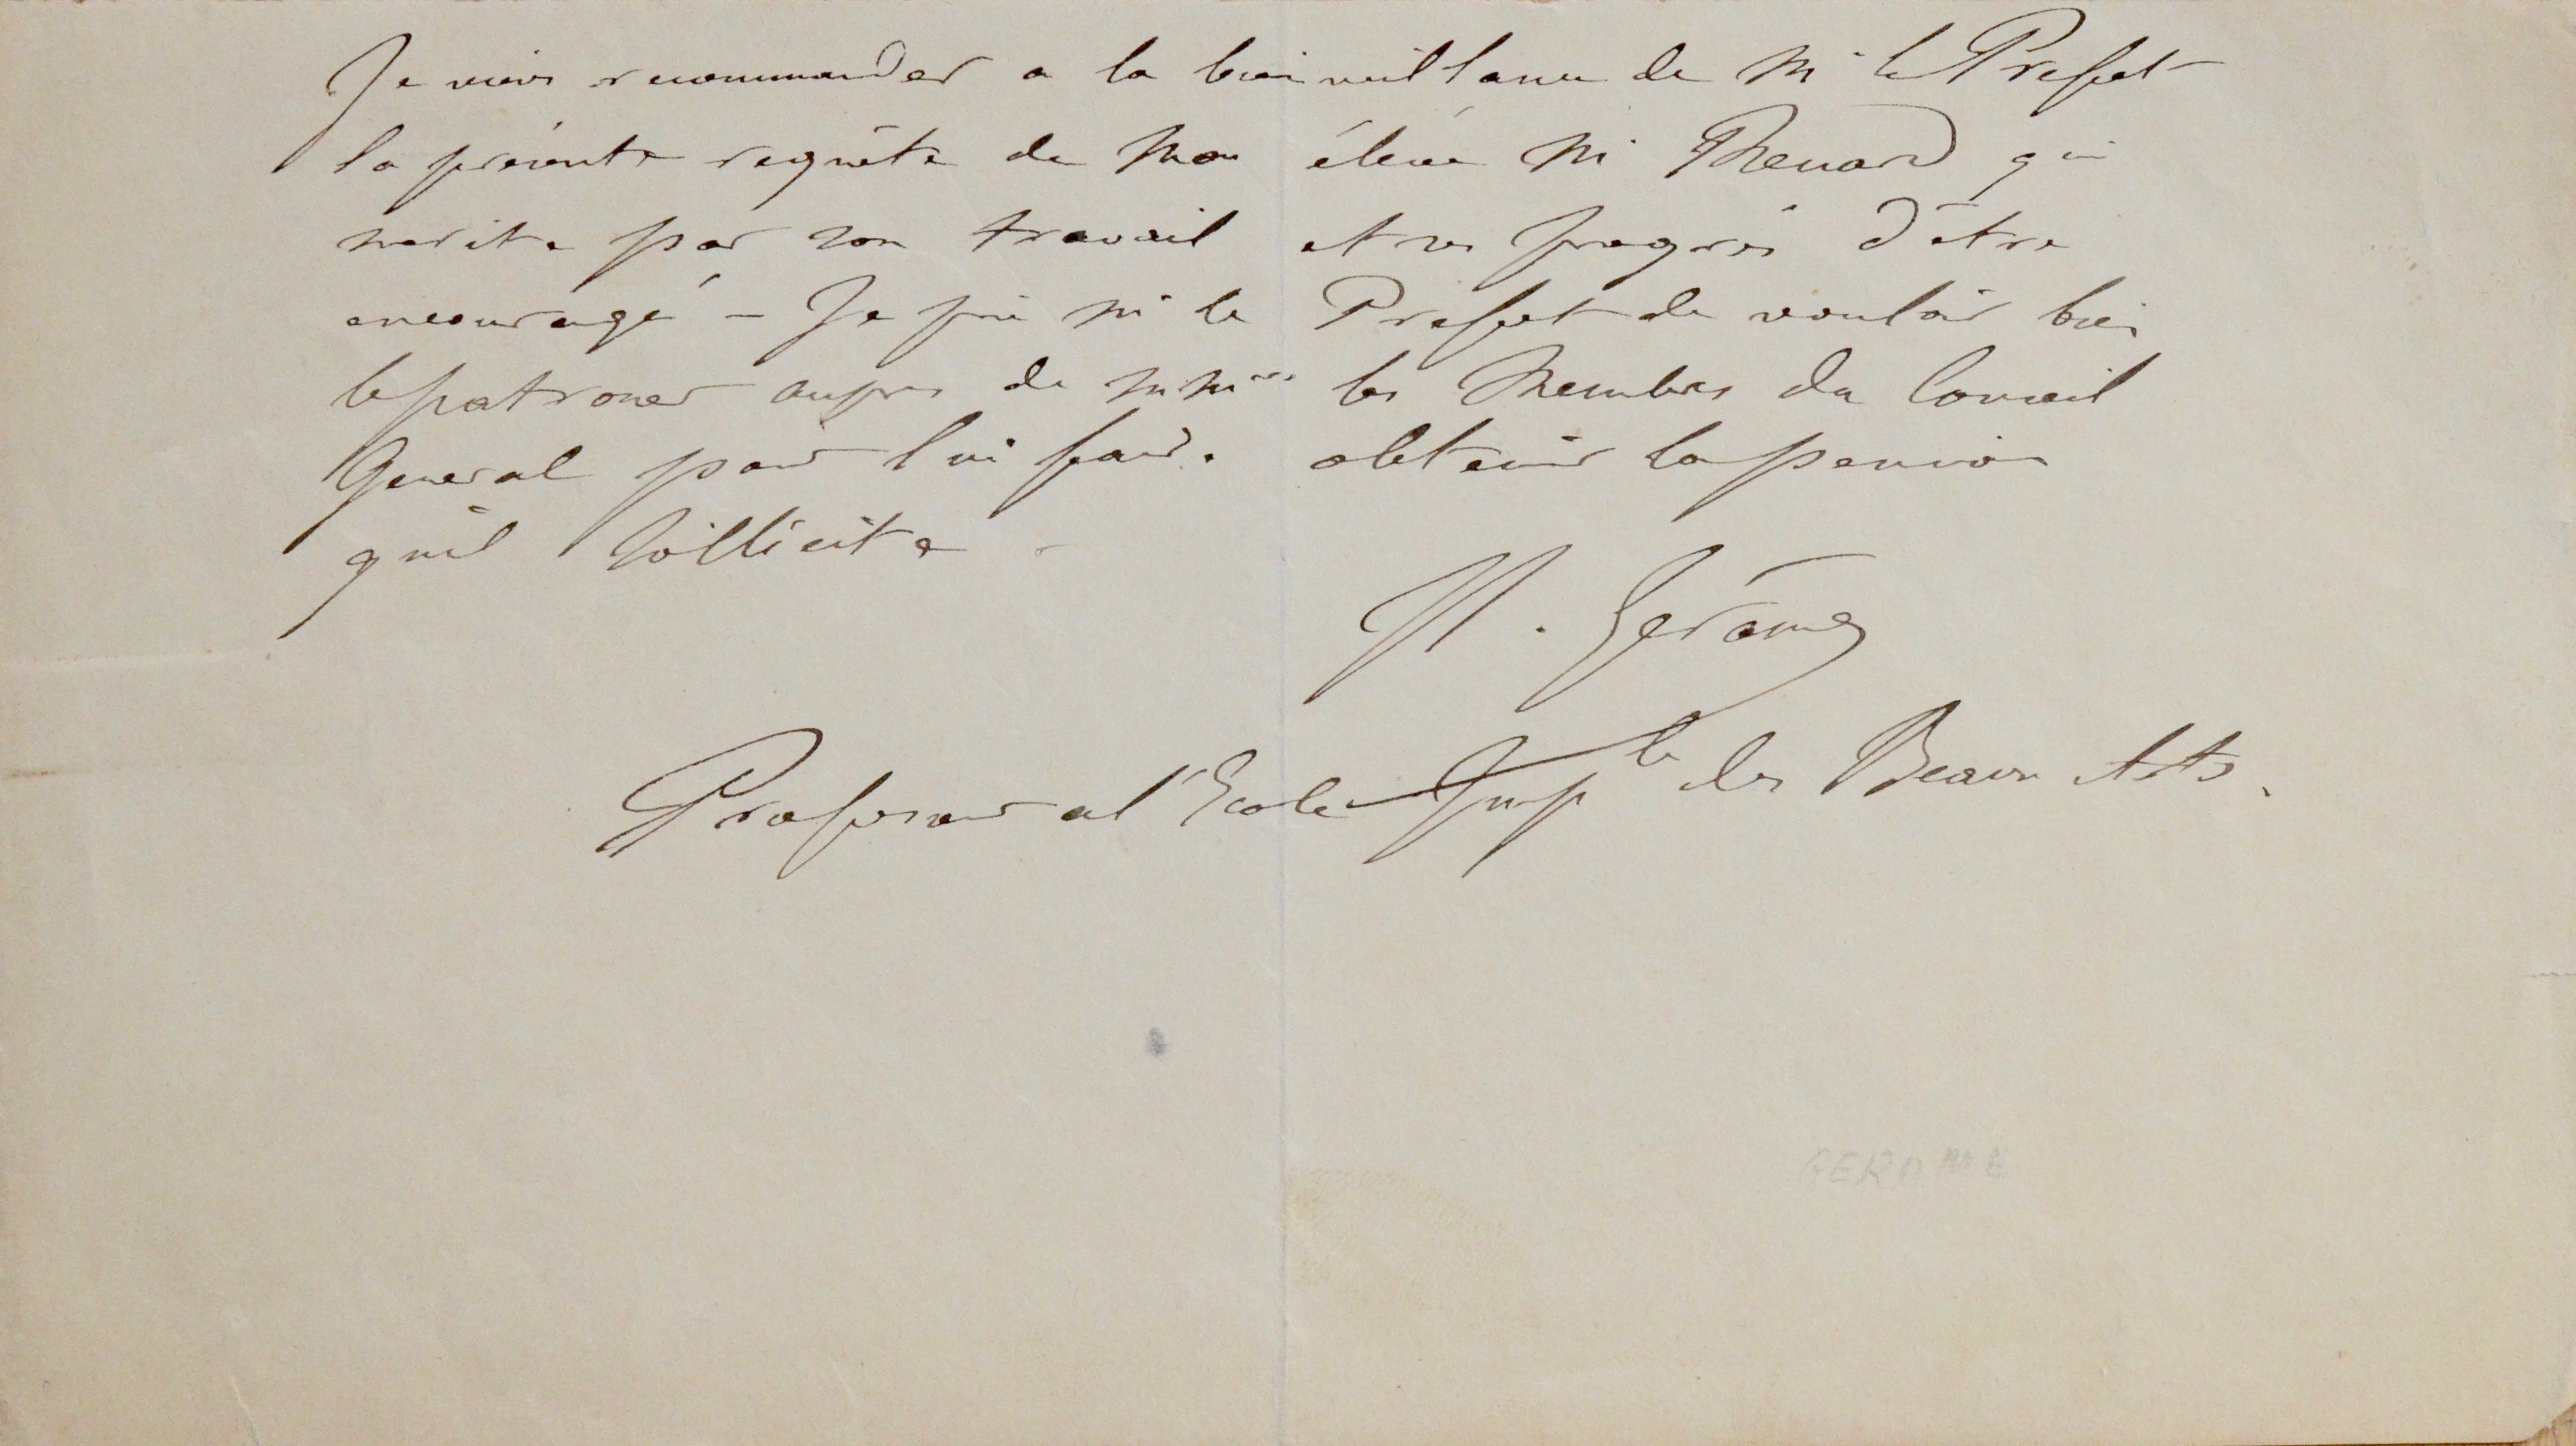 Je viens recommander a la bienveillance de Mr le Prefet
la présente requête de mon élève Mr Renard qui
merite par son travail et ses progrès d'être
encouragé – Je prie Mr le Prefet de vouloir bien
le patroner aupres de MMrs les Membres du Conseil
General pour lui faire obtenir la pension
qu'il sollicite –
Gérome
Professeur a l'Ecole Imple des Beaux Arts.
GEROME